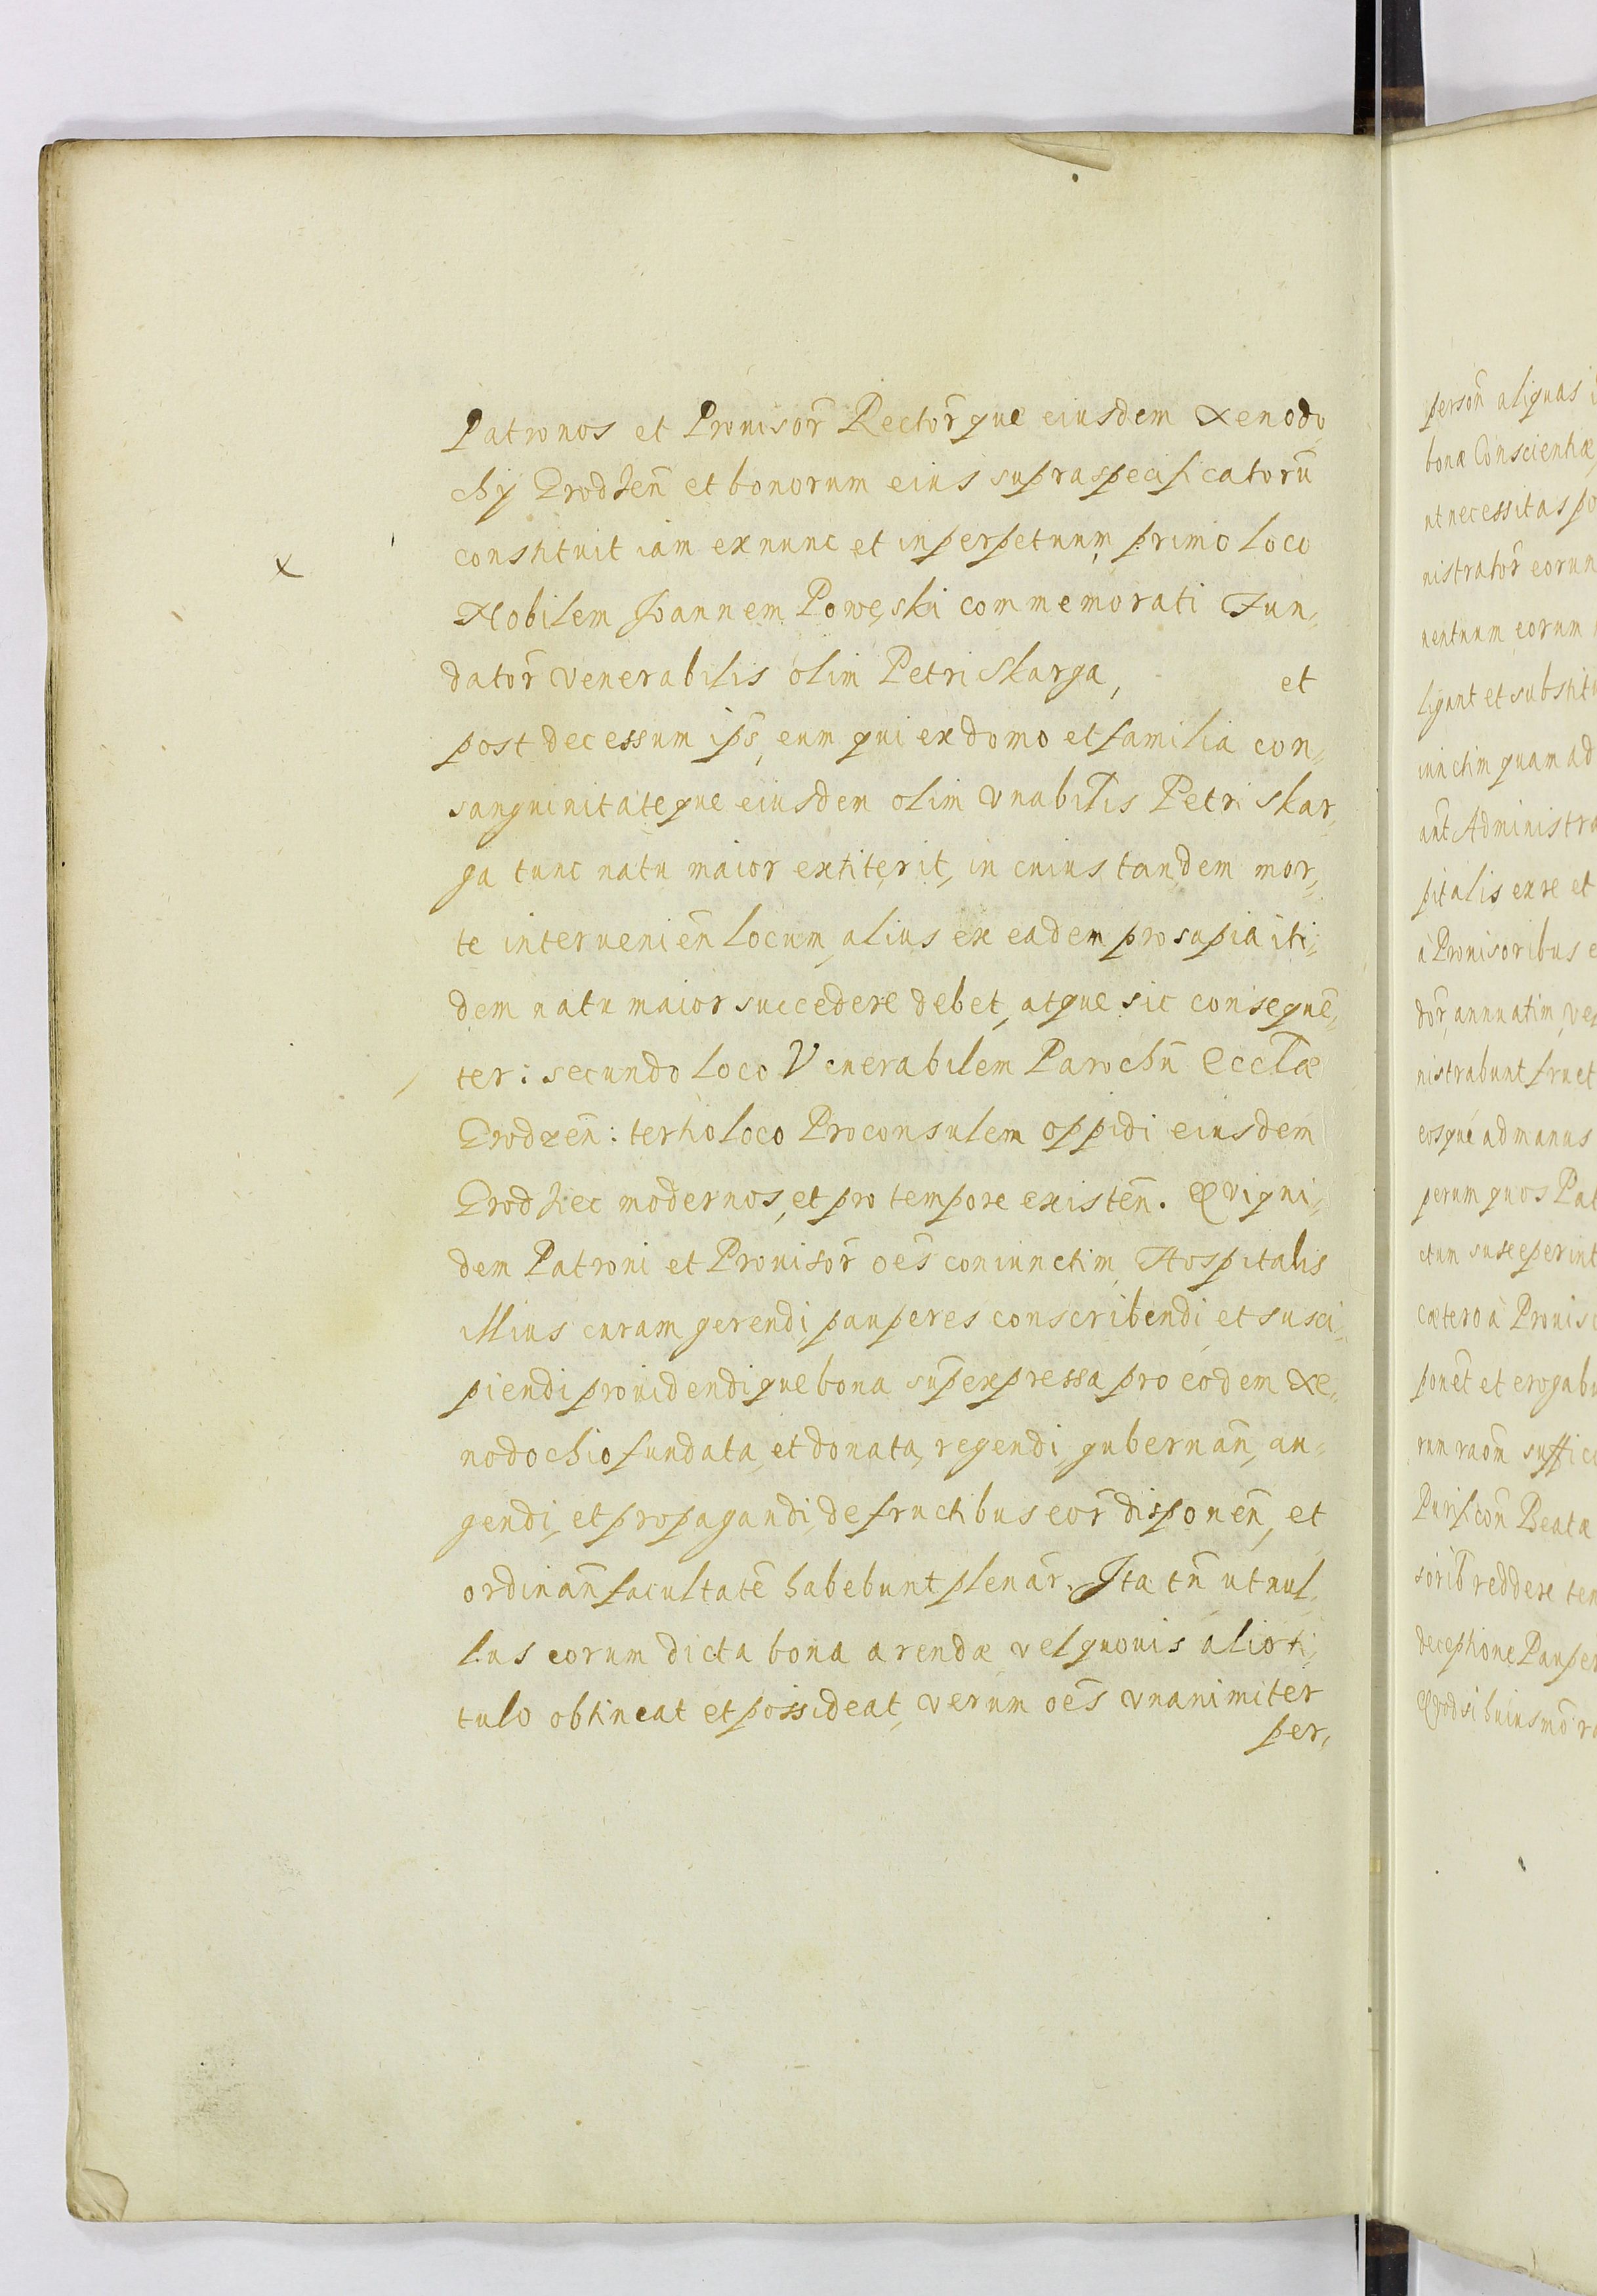 Patronos et Prouisor̃ Rector̃que eiusdem Xenodo,
chÿ Grodzen̄ et bonorum eius supraspecificatorū
constituit iam ex nunc et in perpetuum, primo loco
x
Nobilem Joannem Powęski commemorati Fun,
dator̃ Venerabilis olim Petri Skarga, et
post decessum ip̄s, eum qui ex domo et familia con,
sanguinitateque eiusdem olim Vnabilis Petri Skar,
ga tunc natu maior extiterit, in cuius tandem mor,
te interuenien̄ locum, alius ex eadem prosapia iti,
dem natu maior succedere debet, atque sic consequē,
ter: secundo loco Venerabilem Parochū Eccl̄æ
Grodzen̄: tertio loco Proconsulem oppidi eiusdem
Grodziec modernos, et pro tempore existen̄. Qviqui,
dem Patroni et Prouisor̃ oēs coniunctim Hospitalis
illius curam gerendi, pauperes conscribendi et susci,
piendi prouidendique bona sup̄expressa pro eodem Xe,
nodochio fundata, et donata, regendi, gubernan̄, au,
gendi, et propagandi, de fructibus eor̃ disponen̄, et
ordinan̄ facultatē habebunt plenar̃. Ita tn̄ ut nul,
lus eorum dicta bona arendæ vel quouis alio ti,
tulo obtineat et possideat, verum oēs vnanimiter
per,
person̄ aliquas
bonæ Conscientiæ
ut necessitas po
nistrator̃ eorun
uentuum eorum
ligant et substitu
iunctim quam ad
ant̄ Administra
pitalis ex re et
à Prouisoribus e
dor̃, annuatim, ve
nistrabunt fruct
eosque ad manus
perum quos Pat
ctum susceperint
cætero à Prouiso
ponet̄ et erogabu
rum rāom̄ suffic
Purificōn̄ Beatæ
sorib̄ reddere ten
deceptione Pauper
Qvodsi huiusmō ra